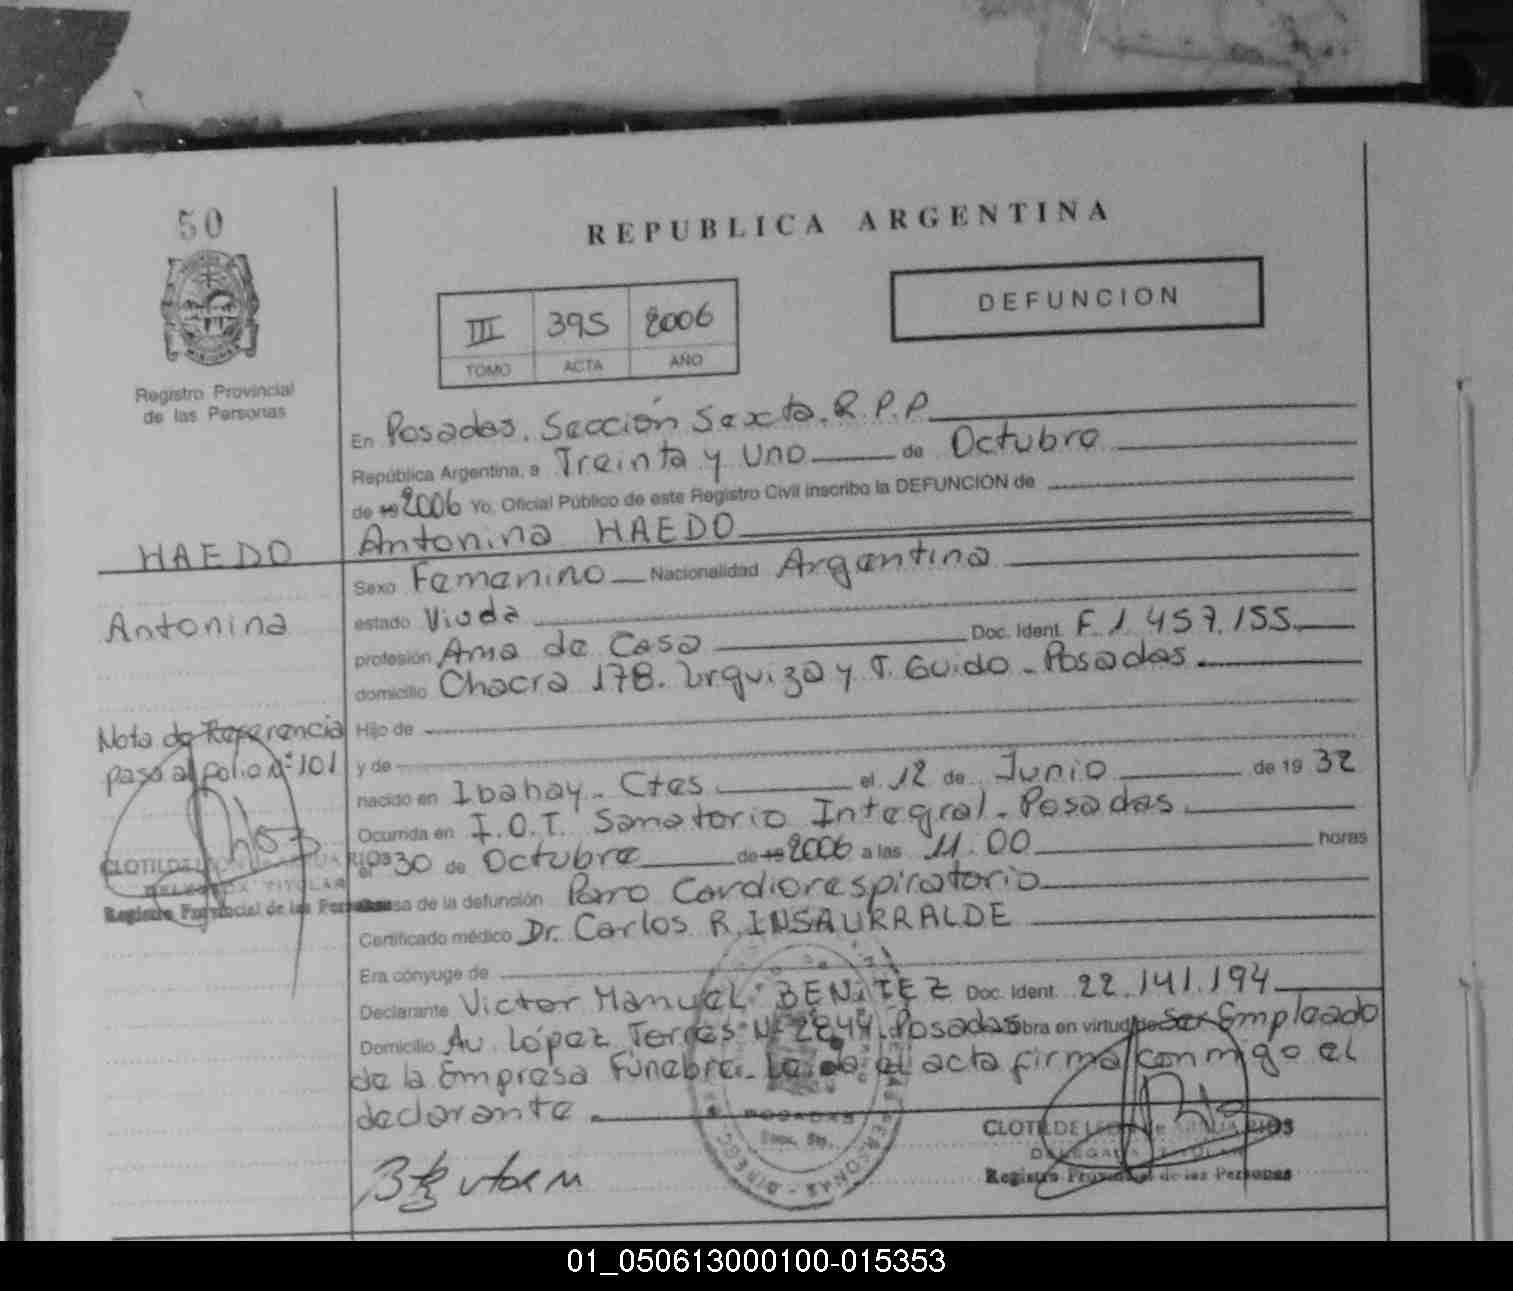 50
REPUBLICA ARGENTINA
III 395 2006
TOMO ACTA AÑO
DEFUNCION
Registro Provincial
de las Personas
En Posadas. Sección Sexta. R.P.P.
República Argentina, a Treinta y Uno de Octubre
de 19 2006 Yo, Oficial Público de este Registro Civil inscribo la DEFUNCION de
HAEDO
Antonina HAEDO
Sexo Femenino Nacionalidad Argentina
Antonina
estado Viuda
profesión Ama de Casa Doc. Ident. F. 1.457.155
domicilio Chacra 178. Urquiza y T. Guido - Posadas
Nota de Referencia
paso al folio Nº 101
Hijo de
y de
nacido en Ibahay - Ctes el 12 de Junio de 19 32
Ocurrida en I.O.T. Sanatorio Integral - Posadas
el 30 de Octubre de 19 2006 a las 11.00 horas
CLOTILDE
DELEGADA TITULAR
Registro Provincial de las Personas
Causa de la defunción Paro Cardiorespiratorio
Certificado médico Dr. Carlos R. INSAURRALDE
Era cónyuge de
Declarante Victor Manuel BENITEZ Doc. Ident. 22.141.194
Domicilio Av. López Torres Nº 2844. Posadas obra en virtud de Ser Empleado
de la Empresa Fúnebre. Leída el acta firma conmigo el
declarante
POSADAS
CLOTILDE
DELEGADA TITULAR
Registro Provincial de las Personas
01_050613000100-015353